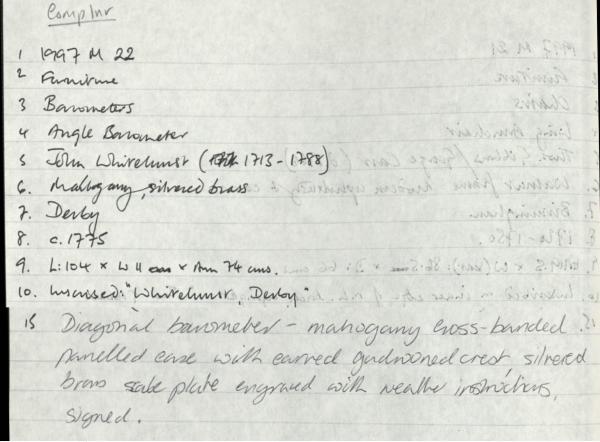 Comp Inr
1 1997 M 22
2 Furniture
3 Barometers
4 Angle Barometer
5 John Whitehurst (1713-1788)
6. Mahogany, silvered brass
7. Derby
8. c.1775
9. L:104 x W 11 x Arm 74 cms.
10. Inscribed: "Whitehurst, Derby"
15 Diagonal barometer - mahogany cross-banded
panelled case with carved gadrooned crest, silvered
brass scale plate engraved with weather instructions,
signed.